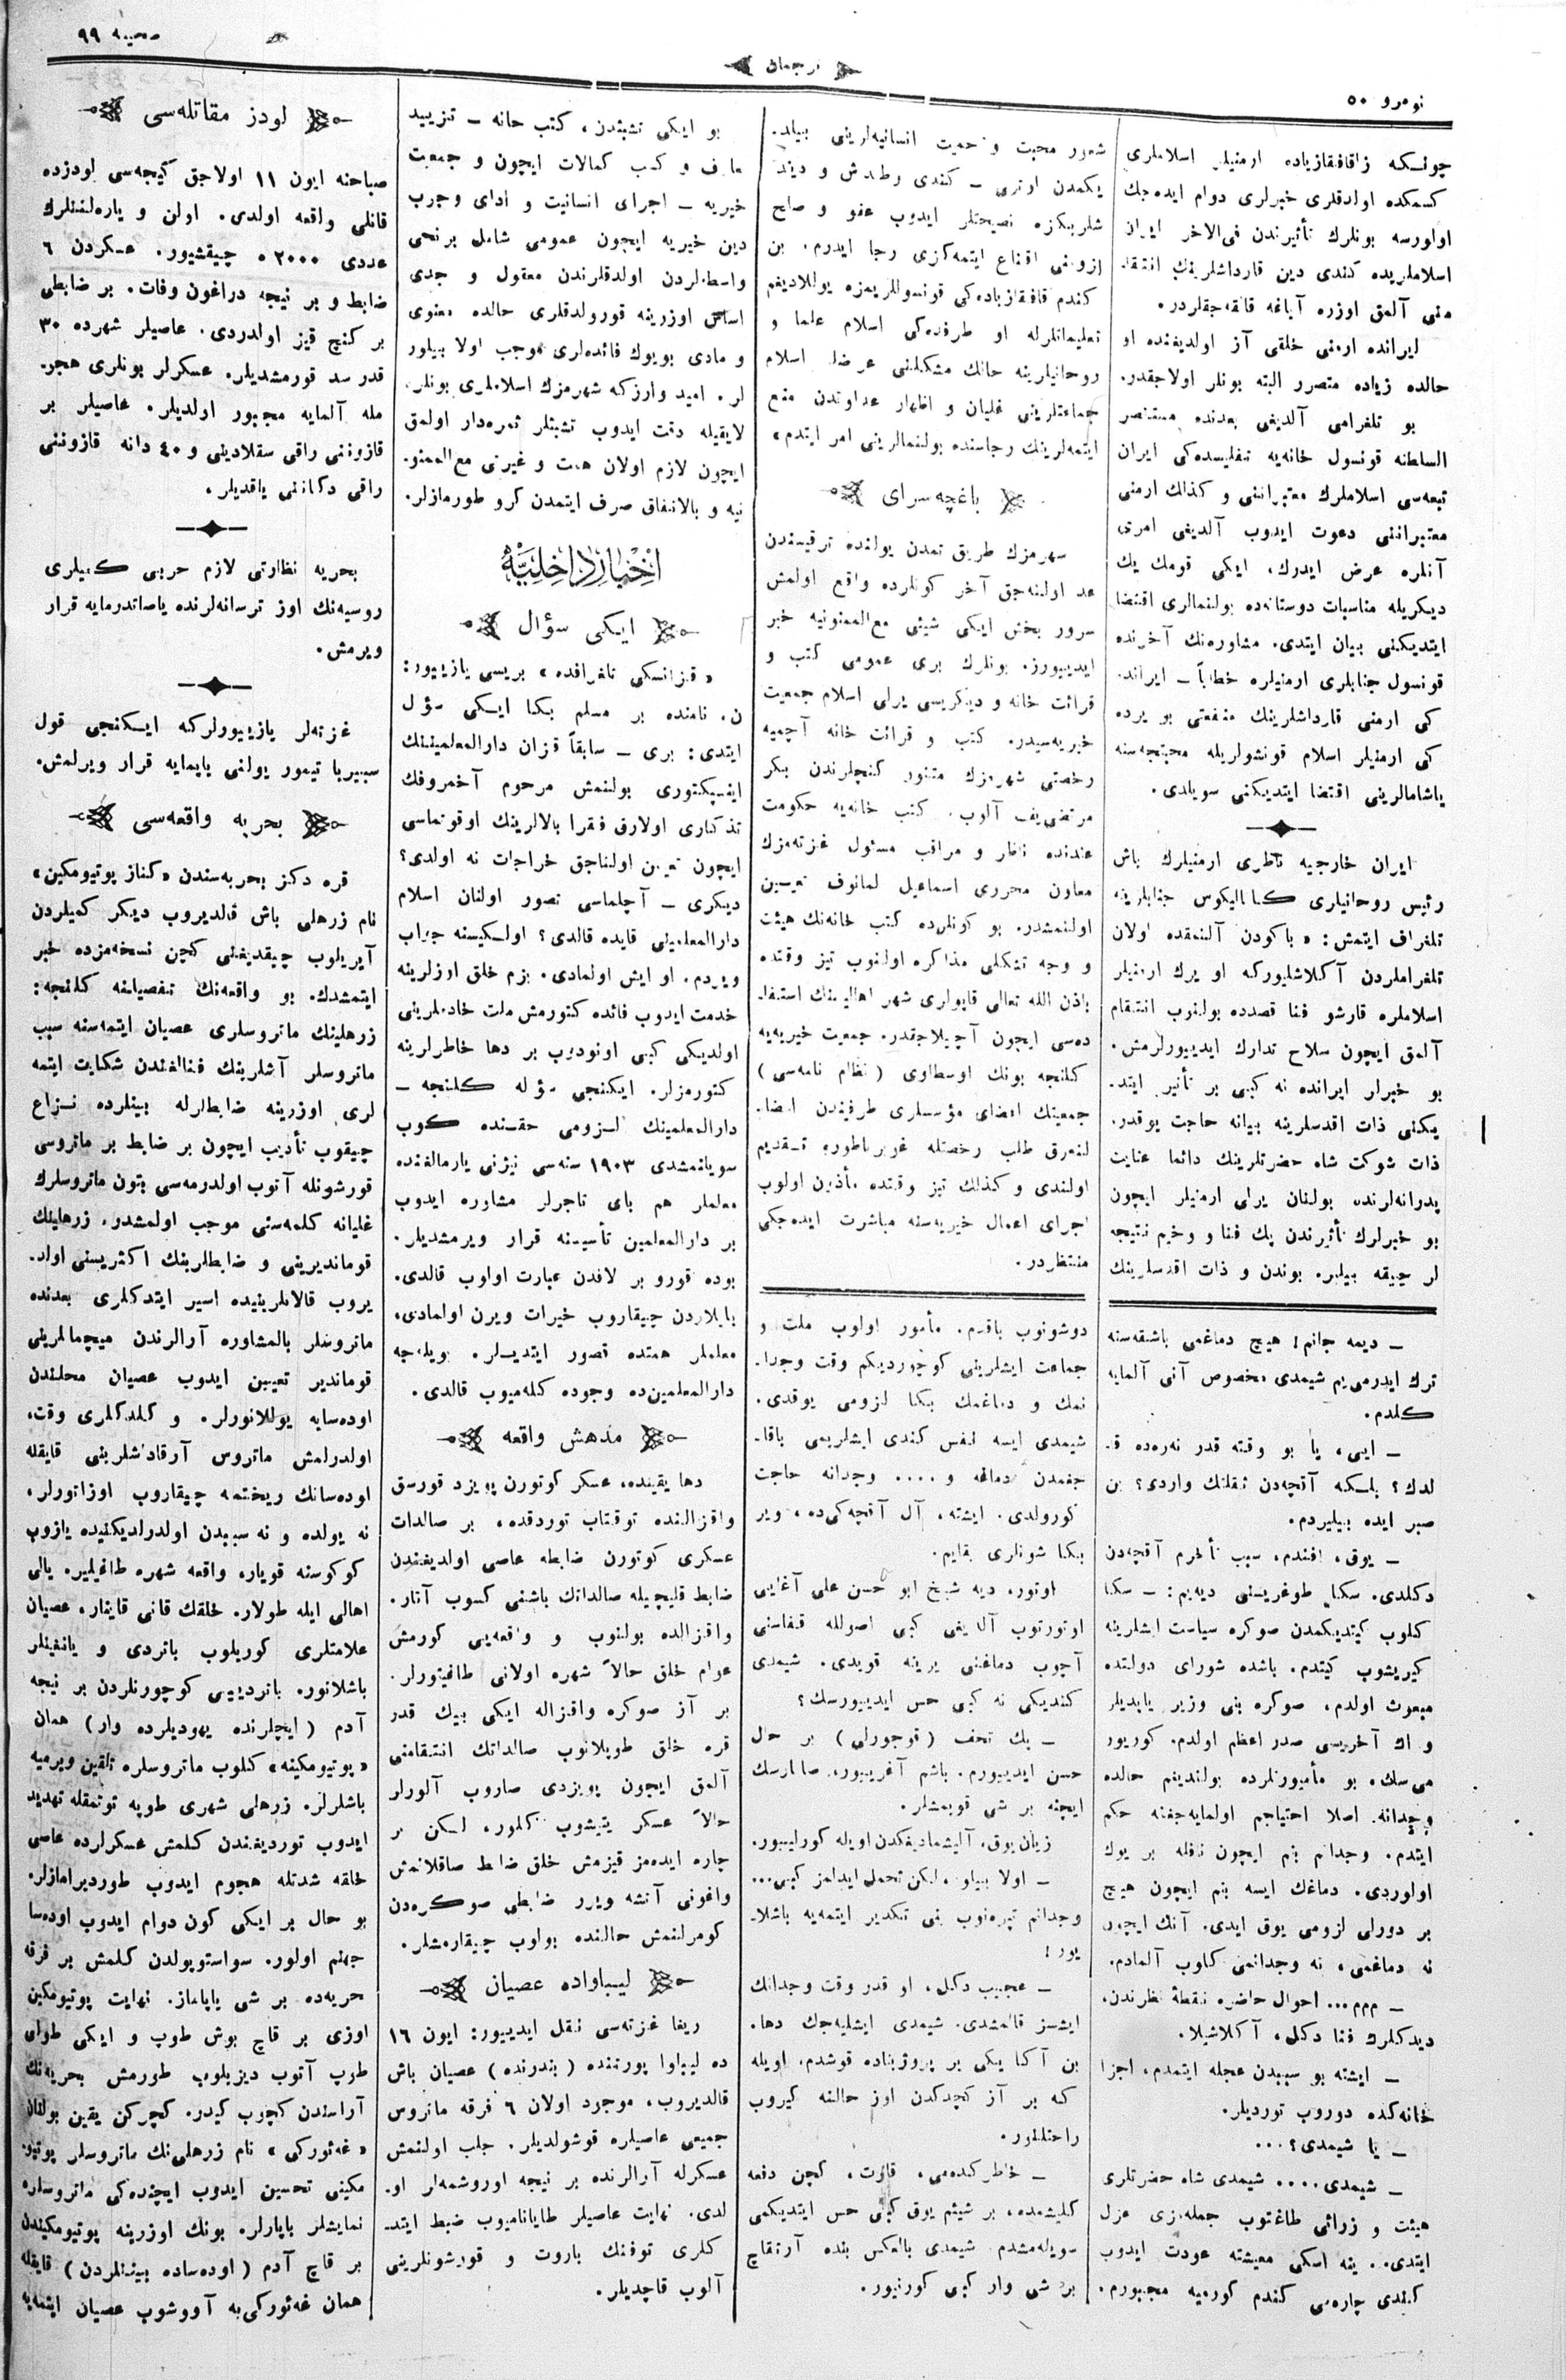 نومرو ٥٠
ترجمان
صحیفه ٩٩
چونکه زاقافقازیاده ارمنیلر اسلاملری
کسمکده اولدقلری خبرلری دوام ایده‌جك
اولورسه بونلرك تأثیرندن فی‌الاخر ایران
اسلاملریده کندی دین قارداشلرینك انتقا‌
منی آلمق اوزره آیاغه قالقه‌جقلردر.
ایرانده ارمنی خلقی آز اولدیغنده او
حالده زیاده متضرر البته بونلر اولاجقدر.
بو تلغرامی آلدیغی بعدنده مستنصر
السلطنه قونسول خانه‌یه تفلیسده‌کی ایران
تبعه‌سی اسلاملرك معتبراننی و کذالك ارمنی
معتبراننی دعوت ایدوب آلدیغی امری
آنلره عرض ایدرك، ایکی قومك یك
دیکریله مناسبات دوستانه‌ده بولنمالری اقتضا
ایتدیکنی بیان ایتدی. مشاوره‌نك آخرنده
قونسول جنابلری ارمنیلره خطاباً ــ ایراند‌
کی ارمنی قارداشلرینك منفعتی بو یرده
کی ارمنیلر اسلام قونشولریله محبتجه‌سنه
یاشامالرینی اقتضا ایتدیکنی سویلدی.
ایران خارجیه ناظری ارمنیلرك باش
رئیس روحانیلری کاتالیکوس جنابلرینه
تلغراف ایتمش: «باکودن آلنمقده اولان
تلغراملردن آکلاشلیورکه او یرك ارمنیلر
اسلاملره قارشو فنا قصدده بولنوب انتقام
آلمق ایچون سلاح تدارك ایدییورلرمش.
بو خبرلر ایرانده نه کبی بر تأثیر ایتد‌
یکنی ذات اقدسلرینه بیانه حاجت یوقدر.
ذات شوکت شاه حضرتلرینك دائما عنایت
پدرانه‌لرنده بولنان یرلی ارمنیلر ایچون
بو خبرلرك تأثیرندن پك فنا و وخیم نتیجه
لر چیقه بیلیر. بوندن و ذات اقدسلرینك
ــ دیمه جانم! هیچ دماغمی باشقه‌سنه
ترك ایدرمی‌یم شیمدی مخصوص آنی آلمایه
کلدم.
ــ ایی، یا بو وقته قدر نه‌ره‌ده قا‌
لدك؟ بلکه آقچه‌دن ثقلتك واردی؟ بن
صبر ایده بیلیردم.
ــ یوق، افندم، سبب تأخرم آقچه‌دن
دکلدی. سکا طوغریسنی دیه‌یم: ــ سکا
کلوب کیتدیکمدن صوکره سیاست ایشلرینه
کیریشوب کیتدم. باشده شورای دولتده
مبعوث اولدم، صوکره بنی وزیر یاپدیلر
و اك آخریسی صدر اعظم اولدم. کوریور
می‌سك، بو مأمورلرده بولندیغم حالده
وجدانه اصلا احتیاجم اولمایه‌جغنه حکم
ایتدم. وجدانم بنم ایچون نافله بر یوك
اولوردی. دماغك ایسه بنم ایچون هیچ
بر دورلی لزومی یوق ایدی. آنك ایچون
نه دماغمی، نه وجدانمی کلوب آلمادم.
ــ ممم... احوال حاضره نقطهٔ نظرندن،
دیدکلرك فنا دکل، آکلاشیلا.
ــ ایشته بو سببدن عجله ایتمدم، اجزا
خانه‌کده دوروب توردیلر.
ــ یا شیمدی؟...
ــ شیمدی.... شیمدی شاه حضرتلری
هیئت و زرائی طاغتوب جمله‌مزی عزل
ایتدی.. ینه اسکی معیشته عودت ایدوب
کندی چاره‌می کندم کورمیه مجبورم.
شعور محبت و حمیت انسانیه‌لرینی بیلد‌
یکمدن اوتری ــ کندی وطنداش و دیندا‌
شلریکزه نصیحتلر ایدوب عفو و صلح
لزومنی اقناع ایتمه‌کزی رجا ایدرم. بن
کندم قافقازیاده‌کی قونسوللریمزه یوللادیغم
تعلیماتلرله او طرفده‌کی اسلام علما و
روحانیلرینه حالك مشکلنی عرضله اسلام
جماعتلرینی غلیان و اظهار عداوتدن منع
ایتمه‌لرینك رجاسنده بولنمالرینی امر ایتدم»
باغچه‌سرای
شهرمزك طریق تمدن یولنده ترقیسندن
عد اولنه‌جق آخر کونلرده واقع اولمش
سرور بخش ایکی شیئی مع‌الممنونیه خبر
ایدییورز. بونلرك بری عمومی کتب و
قرائت خانه و دیکریسی یرلی اسلام جمعیت
خیریه‌سیدر. کتب و قرائت خانه آچمیه
رخصتی شهرمزك متنور کنجلرندن بکر
مرتضی‌یف آلوب، کتب خانه‌یه حکومت
عندنده ناظر و مراقب مسئول غزته‌مزك
معاون محرری اسماعیل لمانوف تعیین
اولنمشدر. بو کونلرده کتب خانه‌نك هیئت
و وجه تشکلی مذاکره اولنوب تیز وقتده
باذن الله تعالی قاپولری شهر اهالیسنك استفا‌
ده‌سی ایچون آچیلاجقدر. جمعیت خیریه‌یه
کلنجه بونك اوسطاوی (نظام نامه‌سی)
جمعیتك اعضای مؤسسلری طرفیندن امضا‌
لنه‌رق طلب رخصتله غوبرناطوره تقدیم
اولندی و کذلك تیز وقتده مأذون اولوب
اجرای اعمال خیریه‌سنه مباشرت ایده‌جکی
منتظردر.
دوشونوب باقدم. مأمور اولوب ملت و
جماعت ایشلرینی کوچوردیکم وقت وجدا‌
نمك و دماغمك بکا لزومی یوقدی.
شیمدی ایسه نفس کندی ایشلریمی باقا‌
جغمدن دماغه و .... وجدانه حاجت
کورولدی. ایشته، آل آقچه‌کی‌ده، ویر
بکا شونلری بقایم.
اوتور، دیه شیخ ابو حسن علی آغایی
اوتورتوب آلدیغی کبی اصولله قفاسنی
آچوب دماغنی یرینه قویدی. شیمدی
کندیکی نه کبی حس ایدییورسك؟
ــ پك تحف (قوجورلی) بر حال
حسن ایدییورم. باشم آغرییور، صانارسك
ایچنه بر شی قویمشلر.
زیان یوق، آلیشمادیغکدن اویله کورلییور.
ــ اولا بیلور، لیکن تحمل ایدلمز کبی...
وجدانم تپره‌نوب بنی تکدیر ایتمه‌یه باشلا‌
یور!
ــ عجیب دکل، او قدر وقت وجدانك
ایشسز قالمشدی. شیمدی ایشلیه‌جك دها.
بن آکا یکی بر پروژیناده قوشدم، اویله
که بر آز کچدکدن اوز حالنه کیروب
راحتلنور.
ــ خاطرکده‌می، قالرت، کچن دفعه
کلیشمده، بر شیئم یوق کبی حس ایتدیکمی
سویله‌مشدم. شیمدی بالعکس بنده آرتقاچ
بر شی وار کبی کورنیور.
بو ایکی تشبثدن، کتب خانه ــ تزیید
معارف و کسب کمالات ایچون و جمعیت
خیریه ــ اجرای انسانیت و ادای وجوب
دین خیریه ایچون عمومی شامل برنجی
واسطه‌لردن اولدقلرندن معقول و جدی
اساس اوزرینه قورولدقلری حالده معنوی
و مادی بویوك فائده‌لری موجب اولا بیلور
لر. امید وارزکه شهرمزك اسلاملری بونلر‌
لایقیله دقت ایدوب تشبثلر ثمره‌دار اولمق
ایچون لازم اولان همت و غیرتی مع‌الممنو‌
نیه و بالاتفاق صرف ایتمدن کرو طورمازلر.
اخبار داخلیه
ایکی سؤال
«قزانسکی تلغرافده» بریسی یازییور:
ن. نامنده بر مسلم بکا ایکی سؤال
ایتدی: بری ــ سابقاً قزان دارالمعلمینینك
اینسپکتوری بولنمش مرحوم آخمروفك
تذکاری اولارق فقرا بالالرینك اوقوتماسی
ایچون تعیین اولناجق خراجات نه اولدی؟
دیکری ــ آچلماسی تصور اولنان اسلام
دارالمعلمینی قایده قالدی؟ اولکیسنه جواب
ویردم. او ایش اولمادی. بزم خلق اوزلرینه
خدمت ایدوب فائده کتورمش ملت خادملرینی
اولدیکی کبی اونودوب بر دها خاطرلرینه
کتورمزلر. ایکنجی سؤاله کلنجه ــ
دارالمعلمینك لزومی حقنده کوب
سویلنمشدی ١٩٠٣ سنه‌سی نیژنی یارمالغنده
معلملر هم بای تاجرلر مشاوره ایدوب
بر دارالمعلمین تأسیسنه قرار ویرمشدیلر.
بوده قورو بر لافدن عبارت اولوب قالدی.
بایلاردن چیقاروب خیرات ویرن اولمادی،
معلملر همتده قصور ایتدیلر. بویله‌جه
دارالمعلمین‌ده وجوده کله‌میوب قالدی.
مدهش واقعه
دها یقینده، عسکر کوتورن پویزد قورسق
واقزالنده توقتاب توردقده، بر صالدات
عسکری کوتورن ضابطه عاصی اولدیغندن
ضابط قلیچیله صالداتك باشنی کسوب آتار.
واقزالده بولنوب و واقعه‌یی کورمش
عوام خلق حالاً شهره اولانی طاغیتورلر.
بر آز صوکره واقزاله ایکی بیك قدر
قره خلق طوپلانوب صالداتك انتقامنی
آلمق ایچون پویزدی صاروب آلورلر
حالاً عسکر یتیشوب کلور، لیکن بر
چاره ایده‌مز قیزمش خلق ضابط صاقلانمش
واغونی آتشه ویرر ضابطی صوکره‌دن
کومرلنمش حالنده بولوب چیقارمشلر.
لیباواده عصیان
ریغا غزته‌سی نقل ایدییور: ایون ١٦
ده لیباوا پورتنده (بندرنده) عصیان باش
قالدیروب، موجود اولان ٦ فرقه ماتروس
جمیعی عاصیلره قوشولدیلر. جلب اولنمش
عسکرله آرالرنده بر نیجه اوروشمه‌لر او‌
لدی. نهایت عاصیلر طایانامیوب ضبط ایتد‌
کلری توفنك باروت و قورشونلرینی
آلوب قاچدیلر.
لودز مقاتله‌سی
صباحنه ایون ١١ اولاجق کیجه‌سی لودزده
قانلی واقعه اولدی. اولن و یاره‌لننلرك
عددی ٢٠٠٠ ه چیقشیور. عسکردن ٦
ضابط و بر نیجه دراغون وفات. بر ضابطی
بر کنج قیز اولدردی. عاصیلر شهرده ٣٠
قدر سد قورمشدیلر. عسکرلر بونلری هجو‌
مله آلمایه مجبور اولدیلر. عاصیلر بر
قازوننی راقی سقلادینی و ٤٠ دانه قازوننی
راقی دکاننی یاقدیلر.
بحریه نظارتی لازم حربی کمیلری
روسیه‌نك اوز ترسانه‌لرنده یاصاتدرمایه قرار
ویرمش.
غزته‌لر یازییورلرکه ایکنجی قول
سیبیریا تیمور یولنی یاپمایه قرار ویرلمش.
بحریه واقعه‌سی
قره دکز بحریه‌سندن «کناز پوتیومکین»
نام زرهلی باش قالدیروب دیکر کمیلردن
آیریلوب چیقدیغنی کچن نسخه‌مزده خبر
ایتمشدك. بو واقعه‌نك تفصیلنه کلنجه:
زرهلینك ماتروسلری عصیان ایتمه‌سنه سبب
ماتروسلر آشلرینك فنالغندن شکایت ایتمه
لری اوزرینه ضابطلرله بینلرده نزاع
چیقوب تأدیب ایچون بر ضابط بر ماتروسی
قورشونله آتوب اولدرمه‌سی بتون ماتروسلرك
غلیانه کلمه‌سنی موجب اولمشدر. زرهلینك
قوماندیرینی و ضابطلرینك اکثریسنی اولد‌
یروب قالانلرینیده اسیر ایتدکلری بعدنده
ماتروسلر بالمشاوره آرالرندن میچمانلرینی
قوماندیر تعیین ایدوب عصیان محلندن
اوده‌سایه یوللانورلر. و کلدکلری وقت،
اولدرلمش ماتروس آرقاداشلرینی قایقله
اوده‌سانك ریختمنه چیقاروب اوزاتورلر،
نه یولده و نه سببدن اولدرلدیکنیده یازوب
کوکوسنه قویار، واقعه شهره طاغیلیر. یالی
اهالی ایله طولار. خلقك قانی قاینار، عصیان
علامتلری کوریلوب باتردی و یانغینلر
باشلانور. باتردییی کوچورنلردن بر نیجه
آدم (ایچلرنده یهودیلرده وار) همان
«پوتیومکینه» کلوب ماتروسلره تلقین ویرمیه
باشلرلر. زرهلی شهری طوپه توتمقله تهدید
ایدوب توردیغندن کلمش عسکرلرده عاصی
خلقه شدتله هجوم ایدوب طوردیرامازلر.
بو حال بر ایکی کون دوام ایدوب اوده‌سا
جهنم اولور. سواستوپولدن کلمش بر فرقه
حریه‌ده بر شی یاپاماز. نهایت پوتیومکین
اوزی بر قاچ بوش طوپ و ایکی طولی
طوپ آتوب دیزیلوب طورمش بحریه‌نك
آراسندن کچوب کیدر. کچرکن یقین بولنان
«غه‌ئورکی» نام زرهلی‌نك ماتروسلر پوتیو‌
مکینی تحسین ایدوب ایچنده‌کی ماتروسلره
نمایشلر یاپارلر. بونك اوزرینه پوتیومکیندن
بر قاچ آدم (اوده‌ساده بینّنلردن) قایقله
همان غه‌ئورکی‌یه آووشوب عصیان ایتمه‌یه